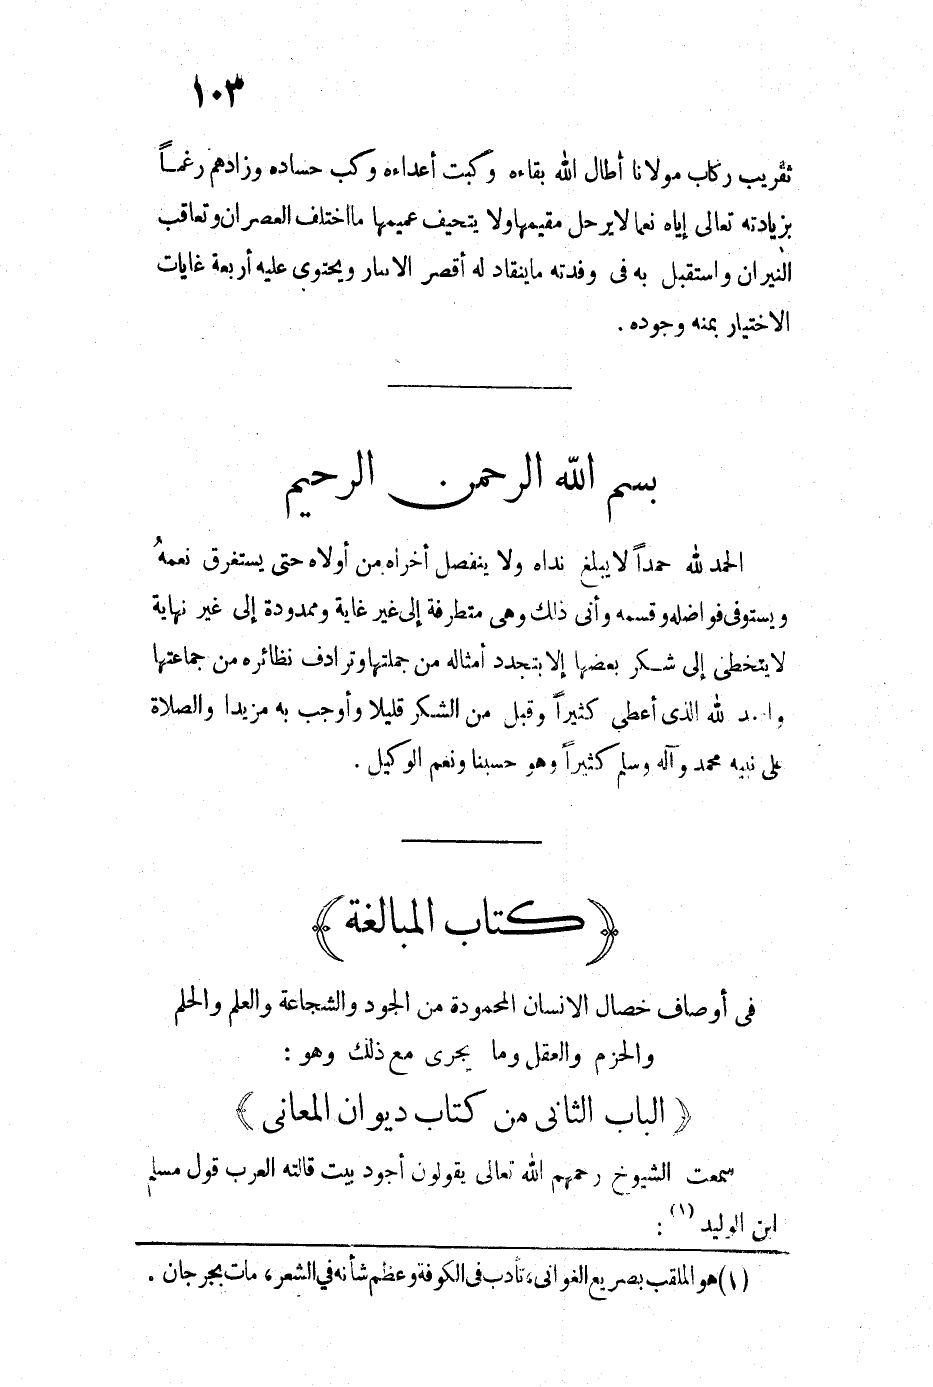 ١٠٣
تقريب ركاب مولانا أطال الله بقاءه وكبت أعداءه وكب حساده وزادهم رغمـاً
بزيادته تعالى إياه نعما لايرحل مقيمها ولا يتحيف عميمها مااختلف العصران وتعاقب
النيران واستقبل به فى وفدته ماينقاد له أقصر الاسار ويحتوى عليه أربعة غايات
الاختيار بمنه وجوده .
بسم الله الرحمن الرحيم
الحمد لله حمداً لا يبلغ نداه ولا ينفصل أخراه من أولاه حتى يستغرق نعمهُ
ويستوفى فواضله وقسمه وأنى ذلك وهى متطرفة إلى غير غاية وممدودة إلى غير نهاية
لايتخطى إلى شـكر بعضها إلا بتجدد أمثاله من جملتها وترادف نظائره من جماعتها
لله الذى أعطى كثيراً وقبل من الشكر قليلا وأوجب به مزيدا والصلاة
على نبيه محمد وآله وسلم كثيراً وهو حسبنا ونعم الوكيل .
﴿ كتاب المبالغة ﴾
فى أوصاف خصال الانسان المحمودة من الجود والشجاعة والعلم والحلم
والحزم والعقل وما يجرى مع ذلك وهو :
﴿ الباب الثانى من كتاب ديوان المعانى ﴾
سمعت الشيوخ رحمهم الله تعالى يقولون أجود بيت قالته العرب قول مسلم
ابن الوليد (١) :
(١) هو الملقب بصريع الغوانى، تأدب فى الكوفة وعظم شأنه في الشعر، مات بجرجان .